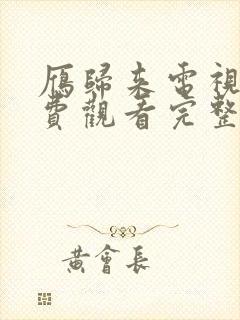 鴈歸來電視
費觀看完整
黃會長